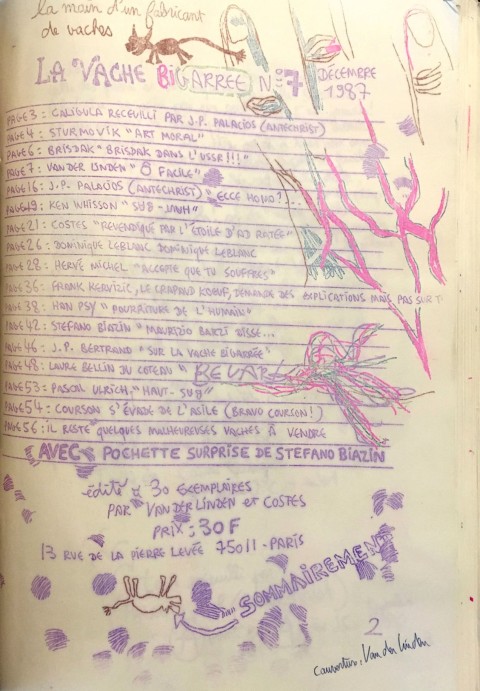 la main d'un fabricant
de vaches
LA VACHE BIGARREE N° 7
DECEMBRE
1987
PAGE 3 : CALIGULA RECEUILLI PAR J.P. PALACIOS (ANTECHRIST)
PAGE 4 : STURMOVIK "ART MORAL"
PAGE 6 : BRISDAK "BRISDAK DANS L'USSR !!!"
PAGE 7 : VAN DER LINDEN "Ô FACILE"
PAGE 16 : J.P. PALACIOS (ANTECHRIST) "ECCE HOMO ?...
PAGE 19 : KEN WHISSON "SUB-
PAGE 21 : COSTES "REVENDIQUÉ PAR L'ÉTOILE D'A3 RATÉE"
PAGE 26 : DOMINIQUE LEBLANC DOMINIQUE LEBLANC
PAGE 28 : HERVÉ MICHEL "ACCEPTE QUE TU SOUFFRES"
PAGE 36 : FRANK KERVIZIC, LE CRAPAUD KOEUF, DEMANDE DES EXPLICATIONS MAIS PAS SUR T
PAGE 38 : HAN PSY "POURRITURE DE L'HUMAIN"
PAGE 42 : STEFANO BIAZIN "MAURIZIO
PAGE 46 : J.P. BERTRAND "SUR LA VACHE BIGARRÉE"
PAGE 48 : LAURE BELLIN DU COTEAU "
PAGE 53 : PASCAL ULRICH, "HAUT-SUB"
PAGE 54 : COURSON S'ÉVADE DE L'ASILE (BRAVO COURSON !)
PAGE 56 : IL RESTE QUELQUES MALHEUREUSES VACHES À VENDRE
AVEC POCHETTE SURPRISE DE STEFANO BIAZIN
édité à 30 EXEMPLAIRES
PAR VAN DER LINDEN ET COSTES
PRIX : 30F
13 RUE DE LA PIERRE LEVÉE 75011 - PARIS
SOMMAIREMENT
2
couverture : Van der Linden